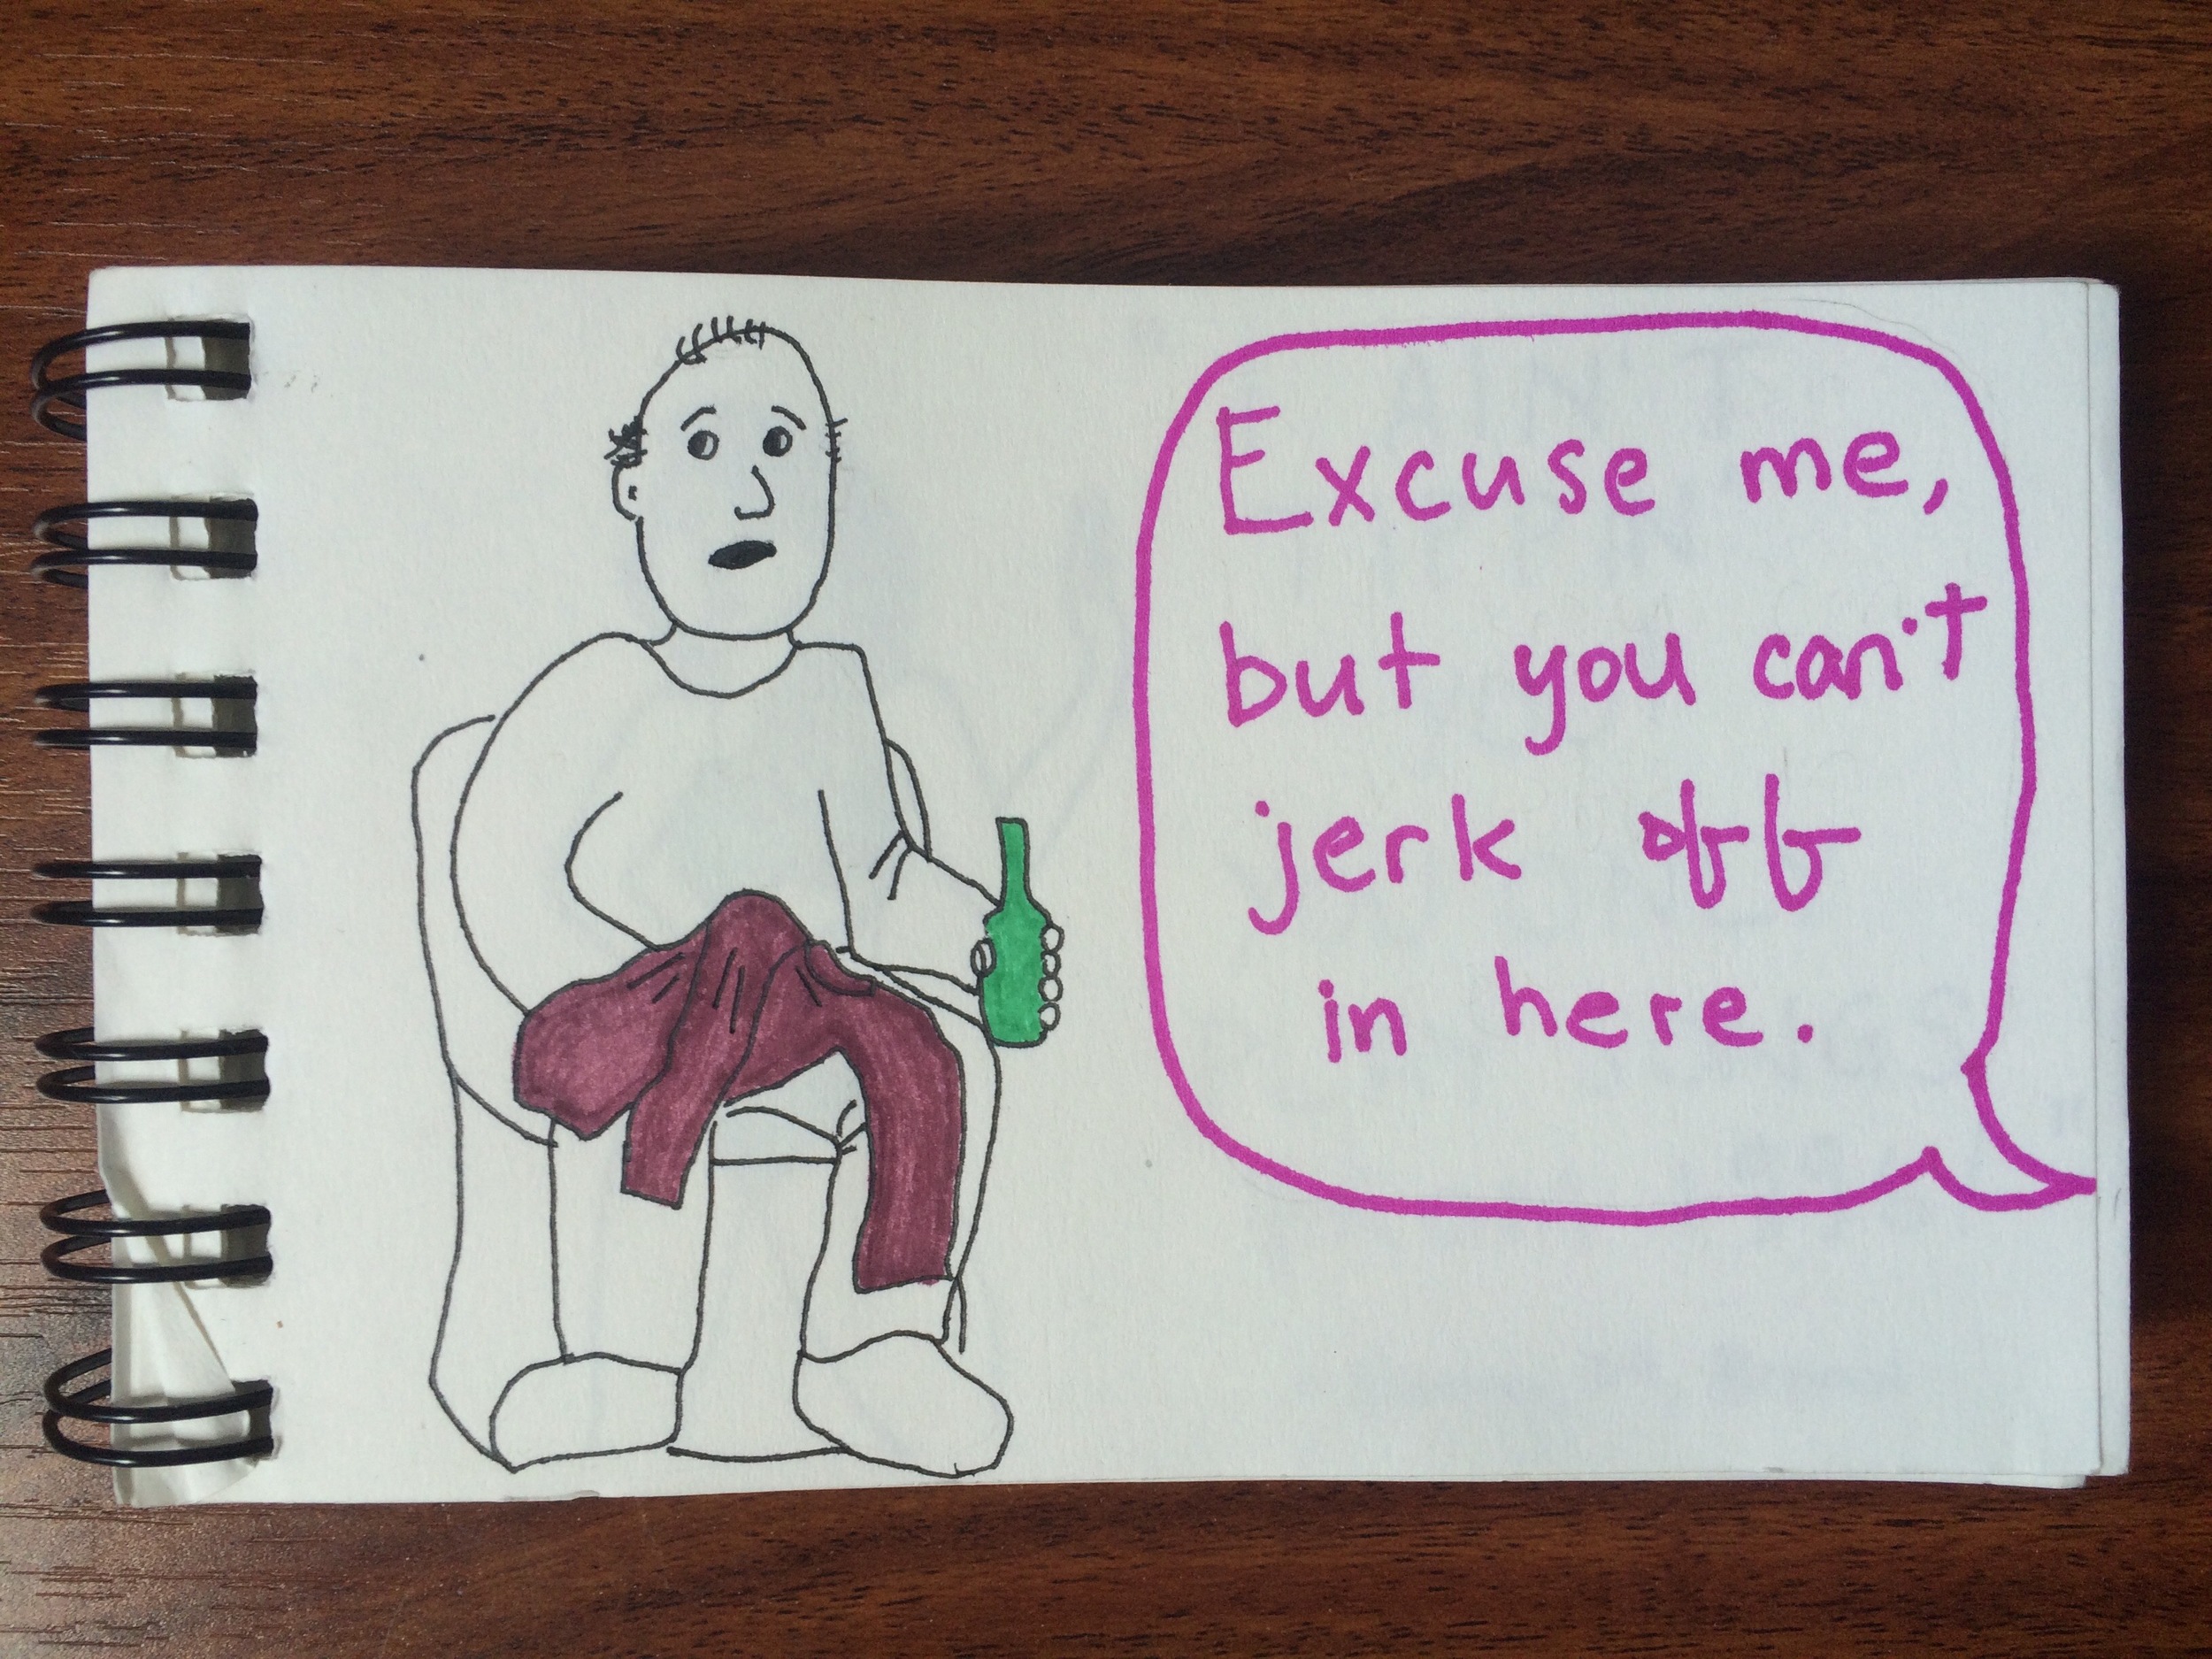 Excuse me,
but you can't
jerk off
in here.